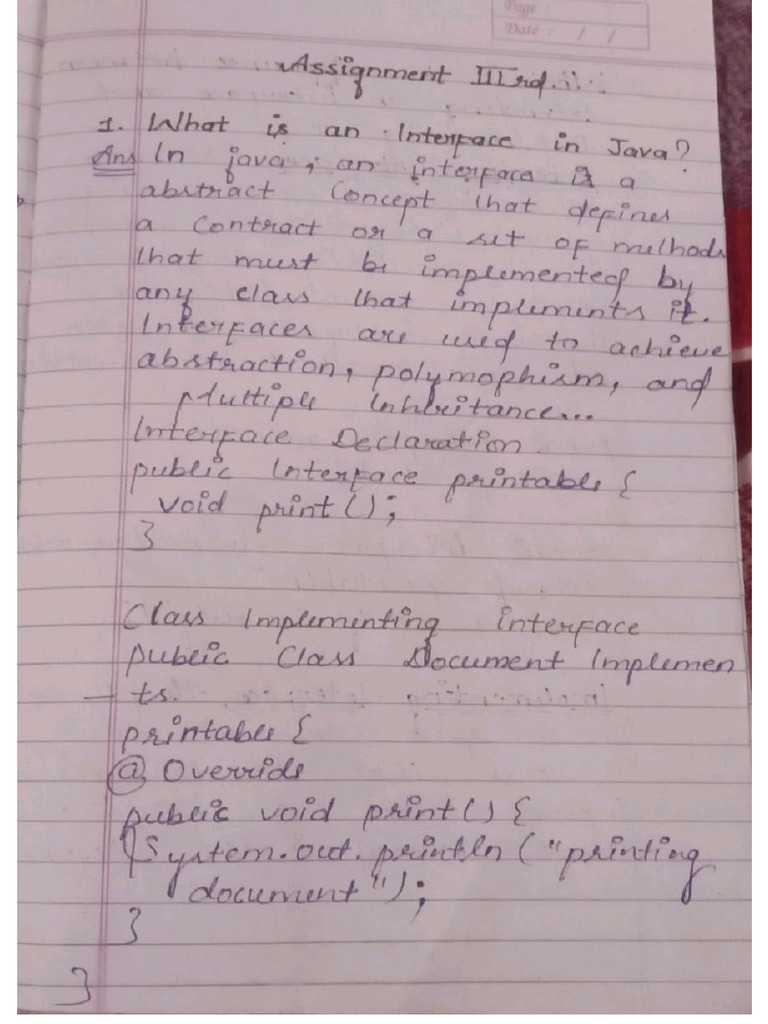 Page :
Date : / /
Assignment IIIrd.
1. What is an Interface in Java?
Ans In java, an interface is a
abstract Concept that defines
a contract or a set of methods
that must be implemented by
any class that implements it.
Interfaces are used to achieve
abstraction, polymophism, and
Multiple Inheritance...
Interface Declaration.
public Interface printable {
void print();
}
Class Implementing interface
public Class Document Implemen
ts.
printable {
@ Override
public void print() {
System.out.println("printing
document");
}
}